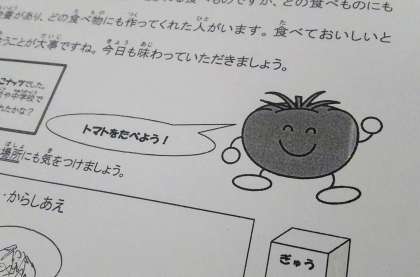 どの食べものにも
養があり、どの食べ物にも作ってくれた人がいます。食べておいしいと
うことが大事ですね。今日も味わっていただきましょう。
ナッツでした。
や中学校で
れたかな？
トマトをたべよう！
場所にも気をつけましょう。
・からしあえ
ぎゅう